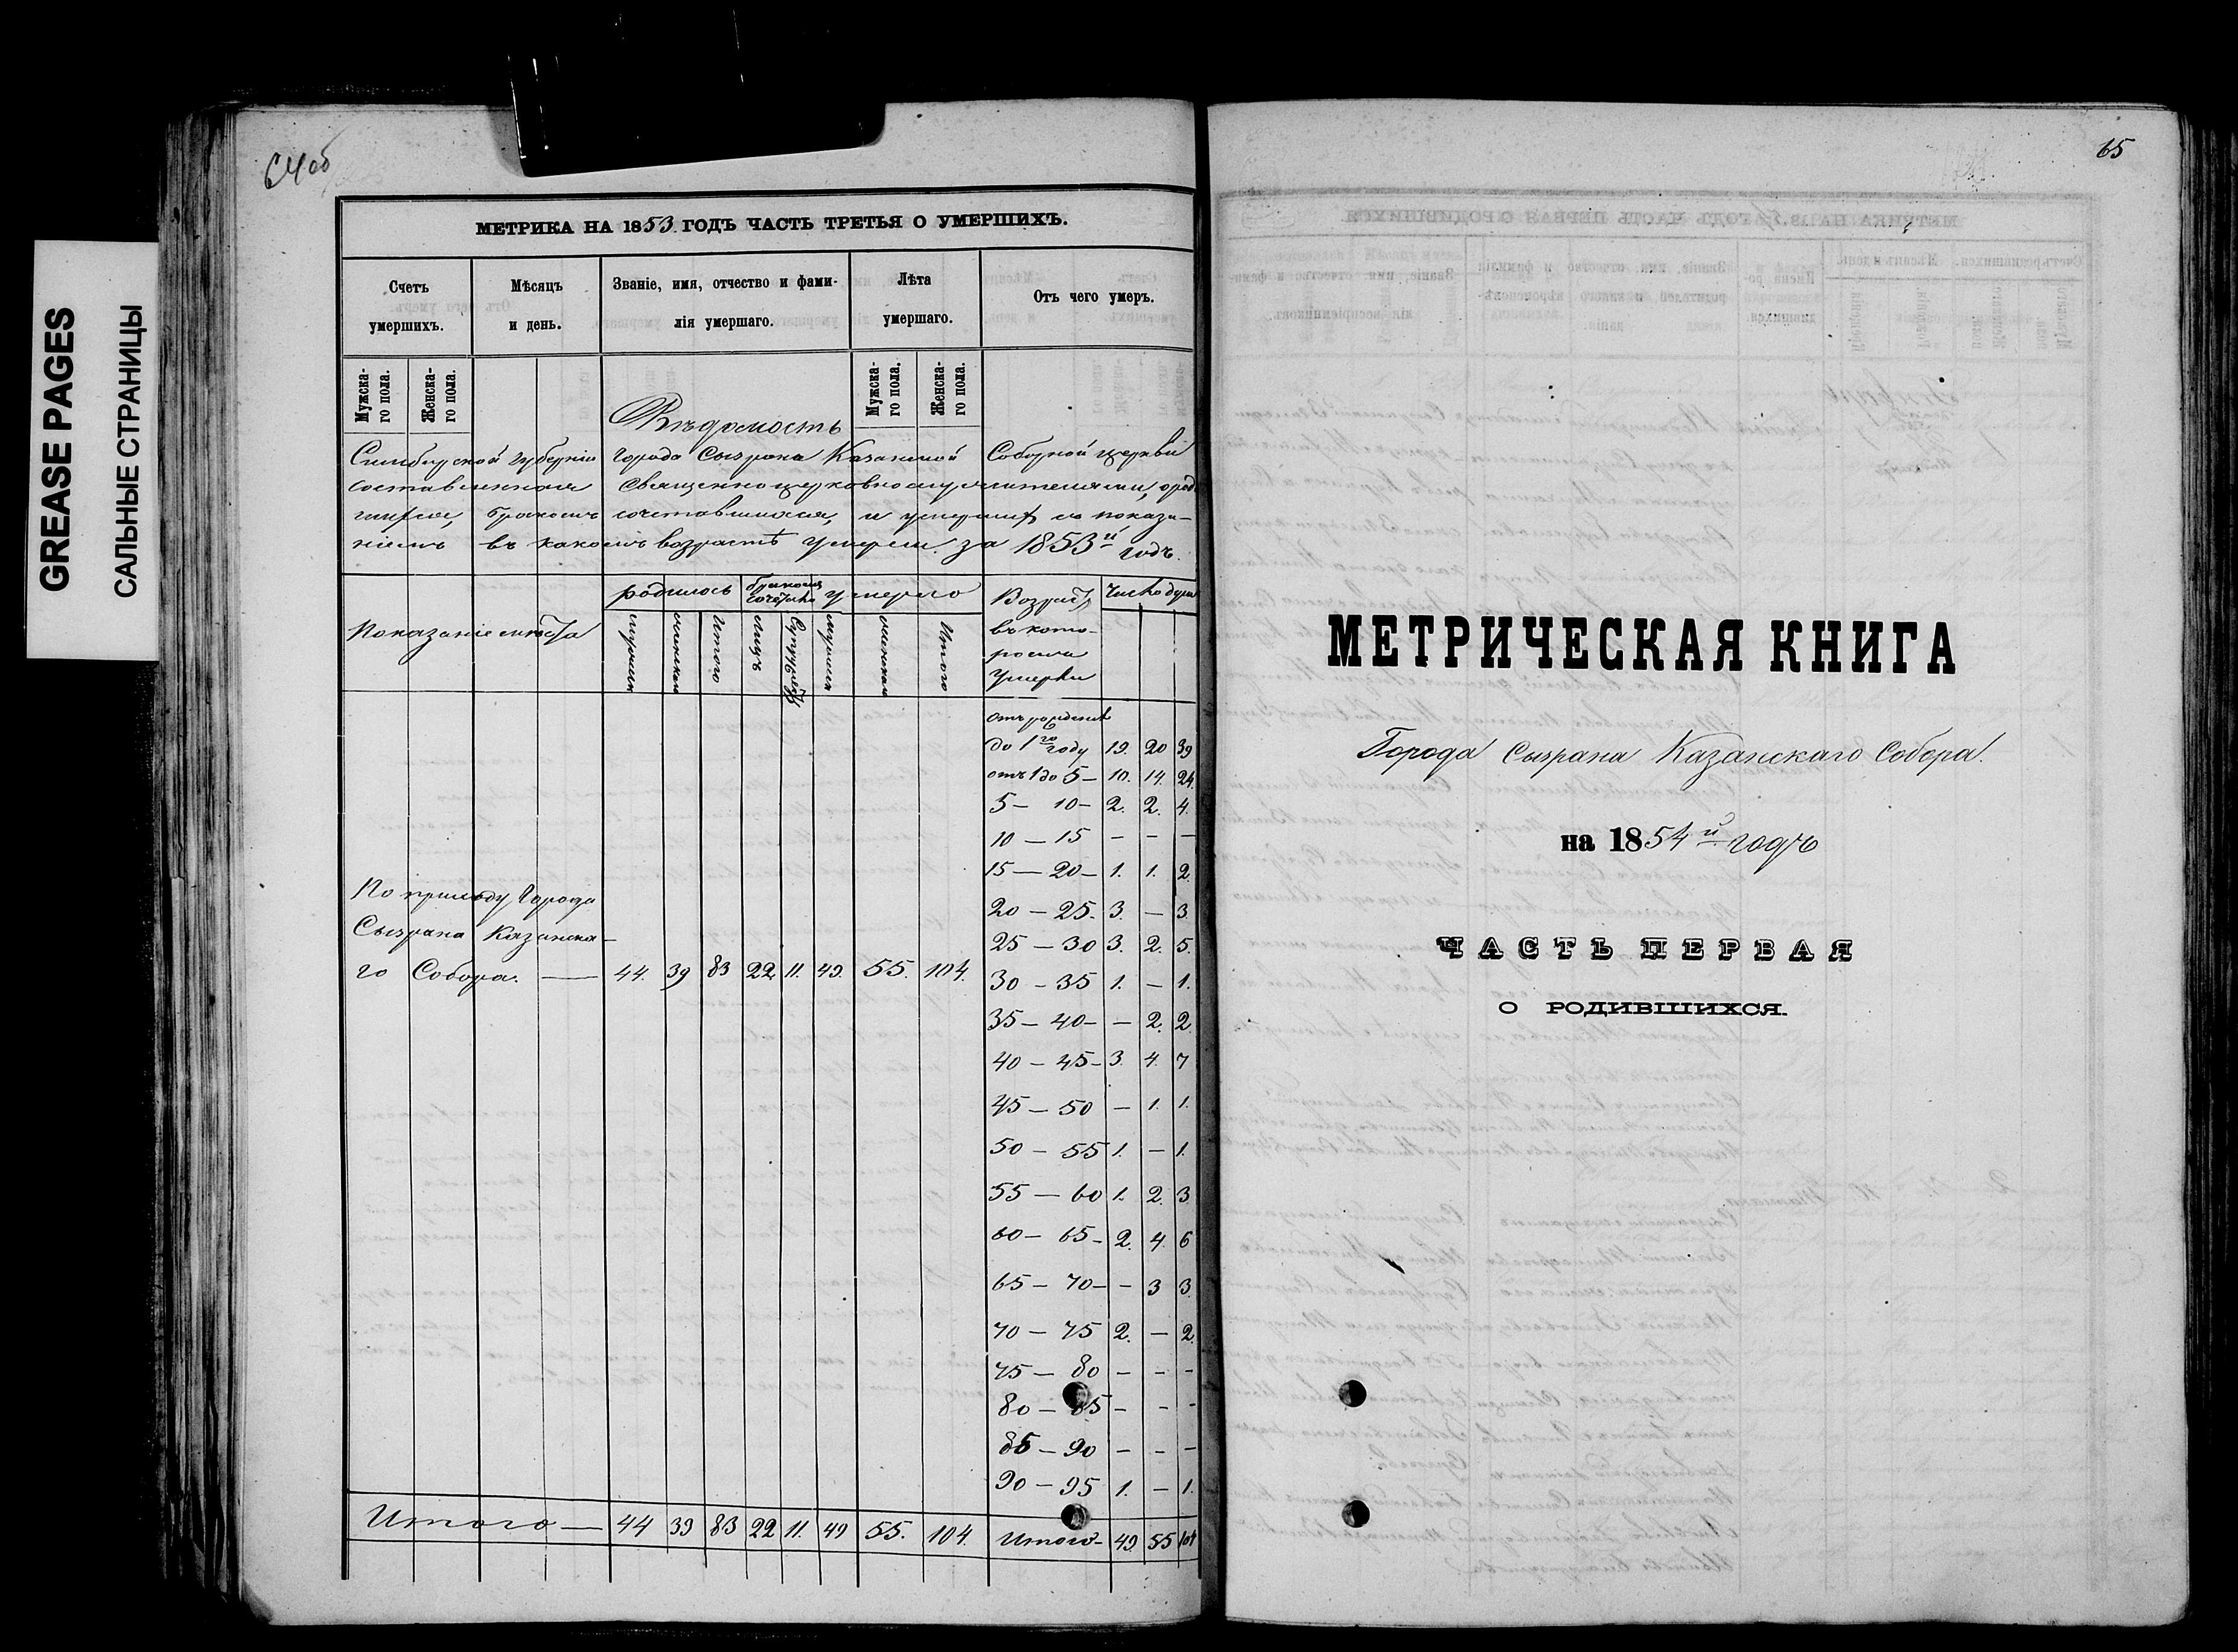 GREASE PAGES
САЛЬНЫЕ СТРАНИЦЫ
64об
МЕТРИКА НА 1853 ГОДЪ ЧАСТЬ ТРЕТЬЯ О УМЕРШИХЪ.
Счетъ умершихъ.
Мѣсяцъ и день.
Званіе, имя, отчество и фами-
лія умершаго.
Лѣта умершаго.
Отъ чего умеръ.
Мужска-
го пола.
Женска-
го пола.
Мужска-
го пола.
Женска-
го пола.
Вѣдомость
Симбирской губерніи города Сызрана Казанской Соборной церкви
составленная священноцерковнослужителями, о роди
вшихся, бракомъ сочетавшихся, и умершихъ съ показа-
ніемъ въ какомъ возрастѣ умерли за 1853й годъ.
Показаніе мѣста
родилось
бракомъ
умерло
Возрастъ
въ кото-
ромъ
умерли
Число душъ
мужска
женска
Итого
лицъ
Супружествъ
мужска
женска
Итого
отъ рожденія
до 1го году 19. 20 39
отъ 1 до 5 – 10. 14. 24.
5 – 10 – 2. 2. 4.
10 – 15 – – –
15 – 20 – 1. 1. 2.
20 – 25. 3. – 3.
25 – 30 3. 2. 5.
30 – 35 1. – 1.
35 – 40 – – 2. 2.
40 – 45 – 3. 4. 7
45 – 50 – 1. 1.
50 – 55 1. – 1.
55 – 60 1. 2. 3
60 – 65 – 2. 4. 6
65 – 70 – – 3 3.
70 – 75 2. – 2.
75 – 80 – – –
80 – 85 – – –
85 – 90 – – –
90 – 95 1. – 1.
По приходу города
Сызрана Казанска-
го Собора. — 44. 39 83 22 11. 49. 55. 104.
Итого — 44 39 83 22 11. 49 55. 104.
Итого – 49. 55 104
65
МЕТРИЧЕСКАЯ КНИГА
Города Сызрана Казанскаго Собора.
на 1854й годъ
ЧАСТЬ ПЕРВАЯ
О РОДИВШИХСЯ.